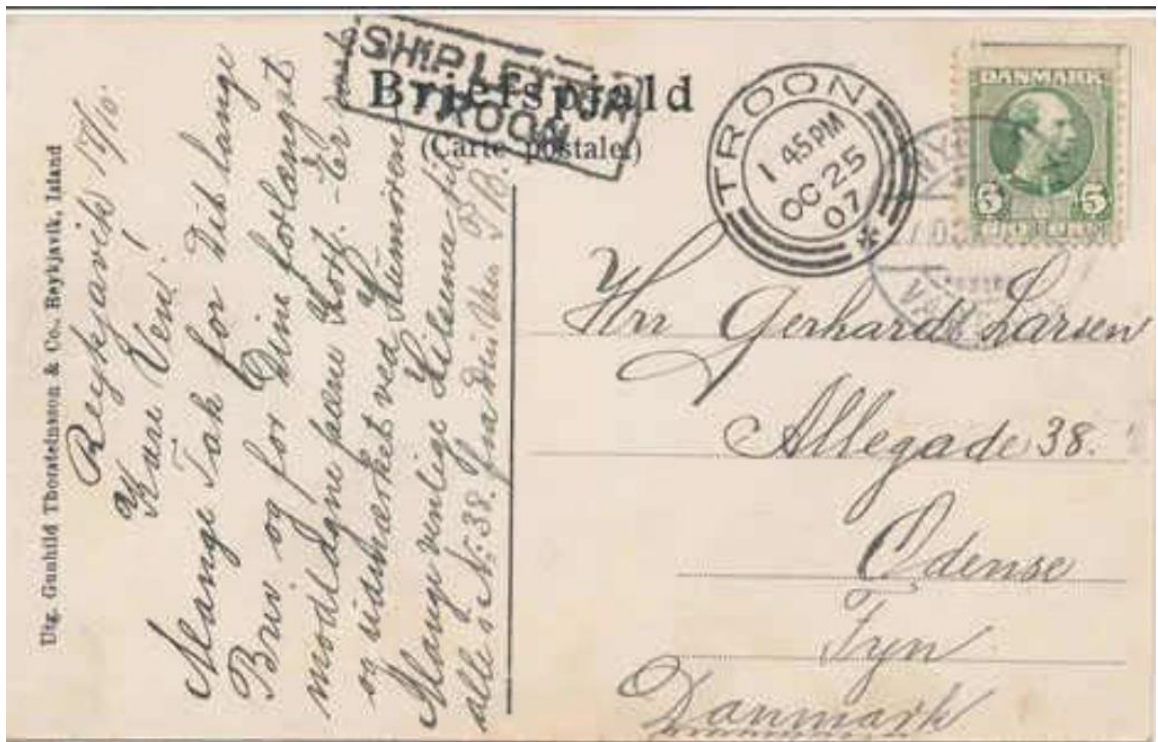 Utg. Gunhild Thorsteinsson & Co. Reykjavik, Island
Reykjavik 17/10.
Kære Ven!
Mange Tak for Dit lange
Brev og for Deine forlangst
modtagne pæne Kort. - Er
og udmærket ved Humøren
Mange venlige Hilsener til
alle i Nr. 38. fra din Ven
SHIP LETTER
TROON
Brjefspjald
(Carte postale)
TROON
1 45 PM
OC 25
07
DANMARK
5 5
Hrr Gerhardt Larsen
Allegade 38.
Odense
Fyn
Danmark